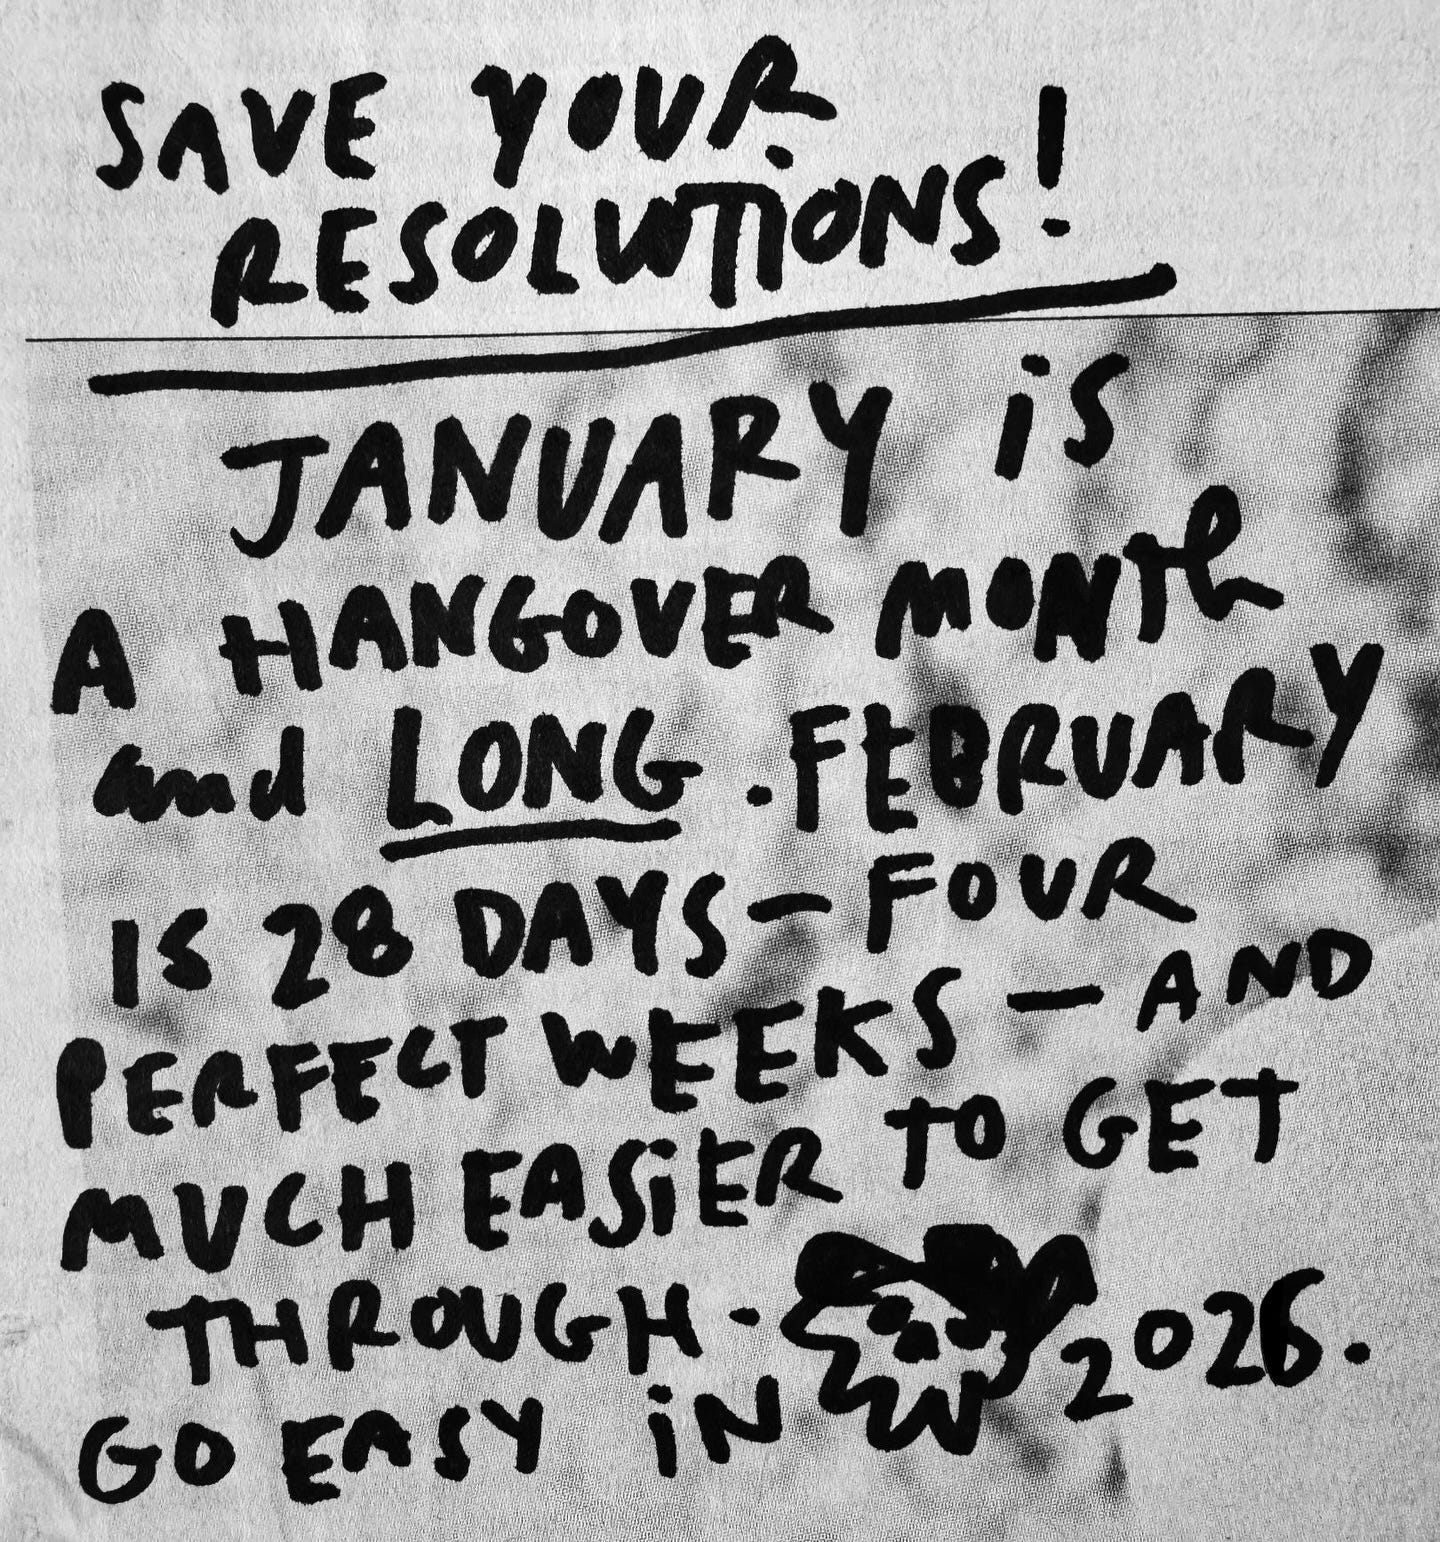 SAVE YOUR
RESOLUTIONS!
JANUARY iS
A HANGOVER MONTh
and LONG. FEBRUARY
IS 28 DAYS – FOUR
PERFECT WEEKS – AND
MUCH EASiER TO GET
THROUGH.
GO EASY iN 2026.